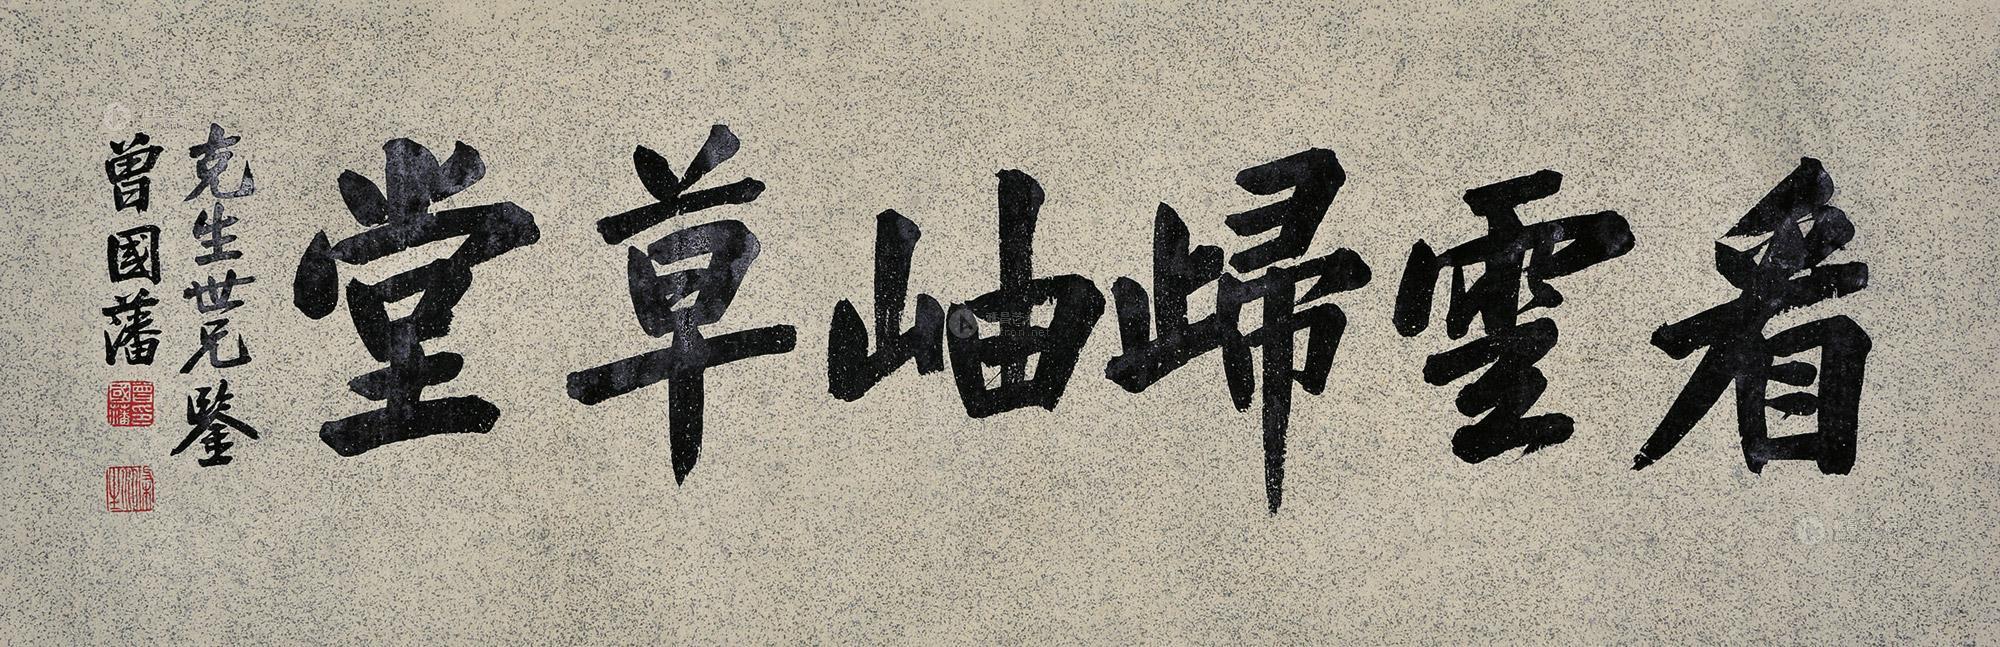 看雲歸岫草堂
克生世兄鑒
曾國藩
曾國藩印